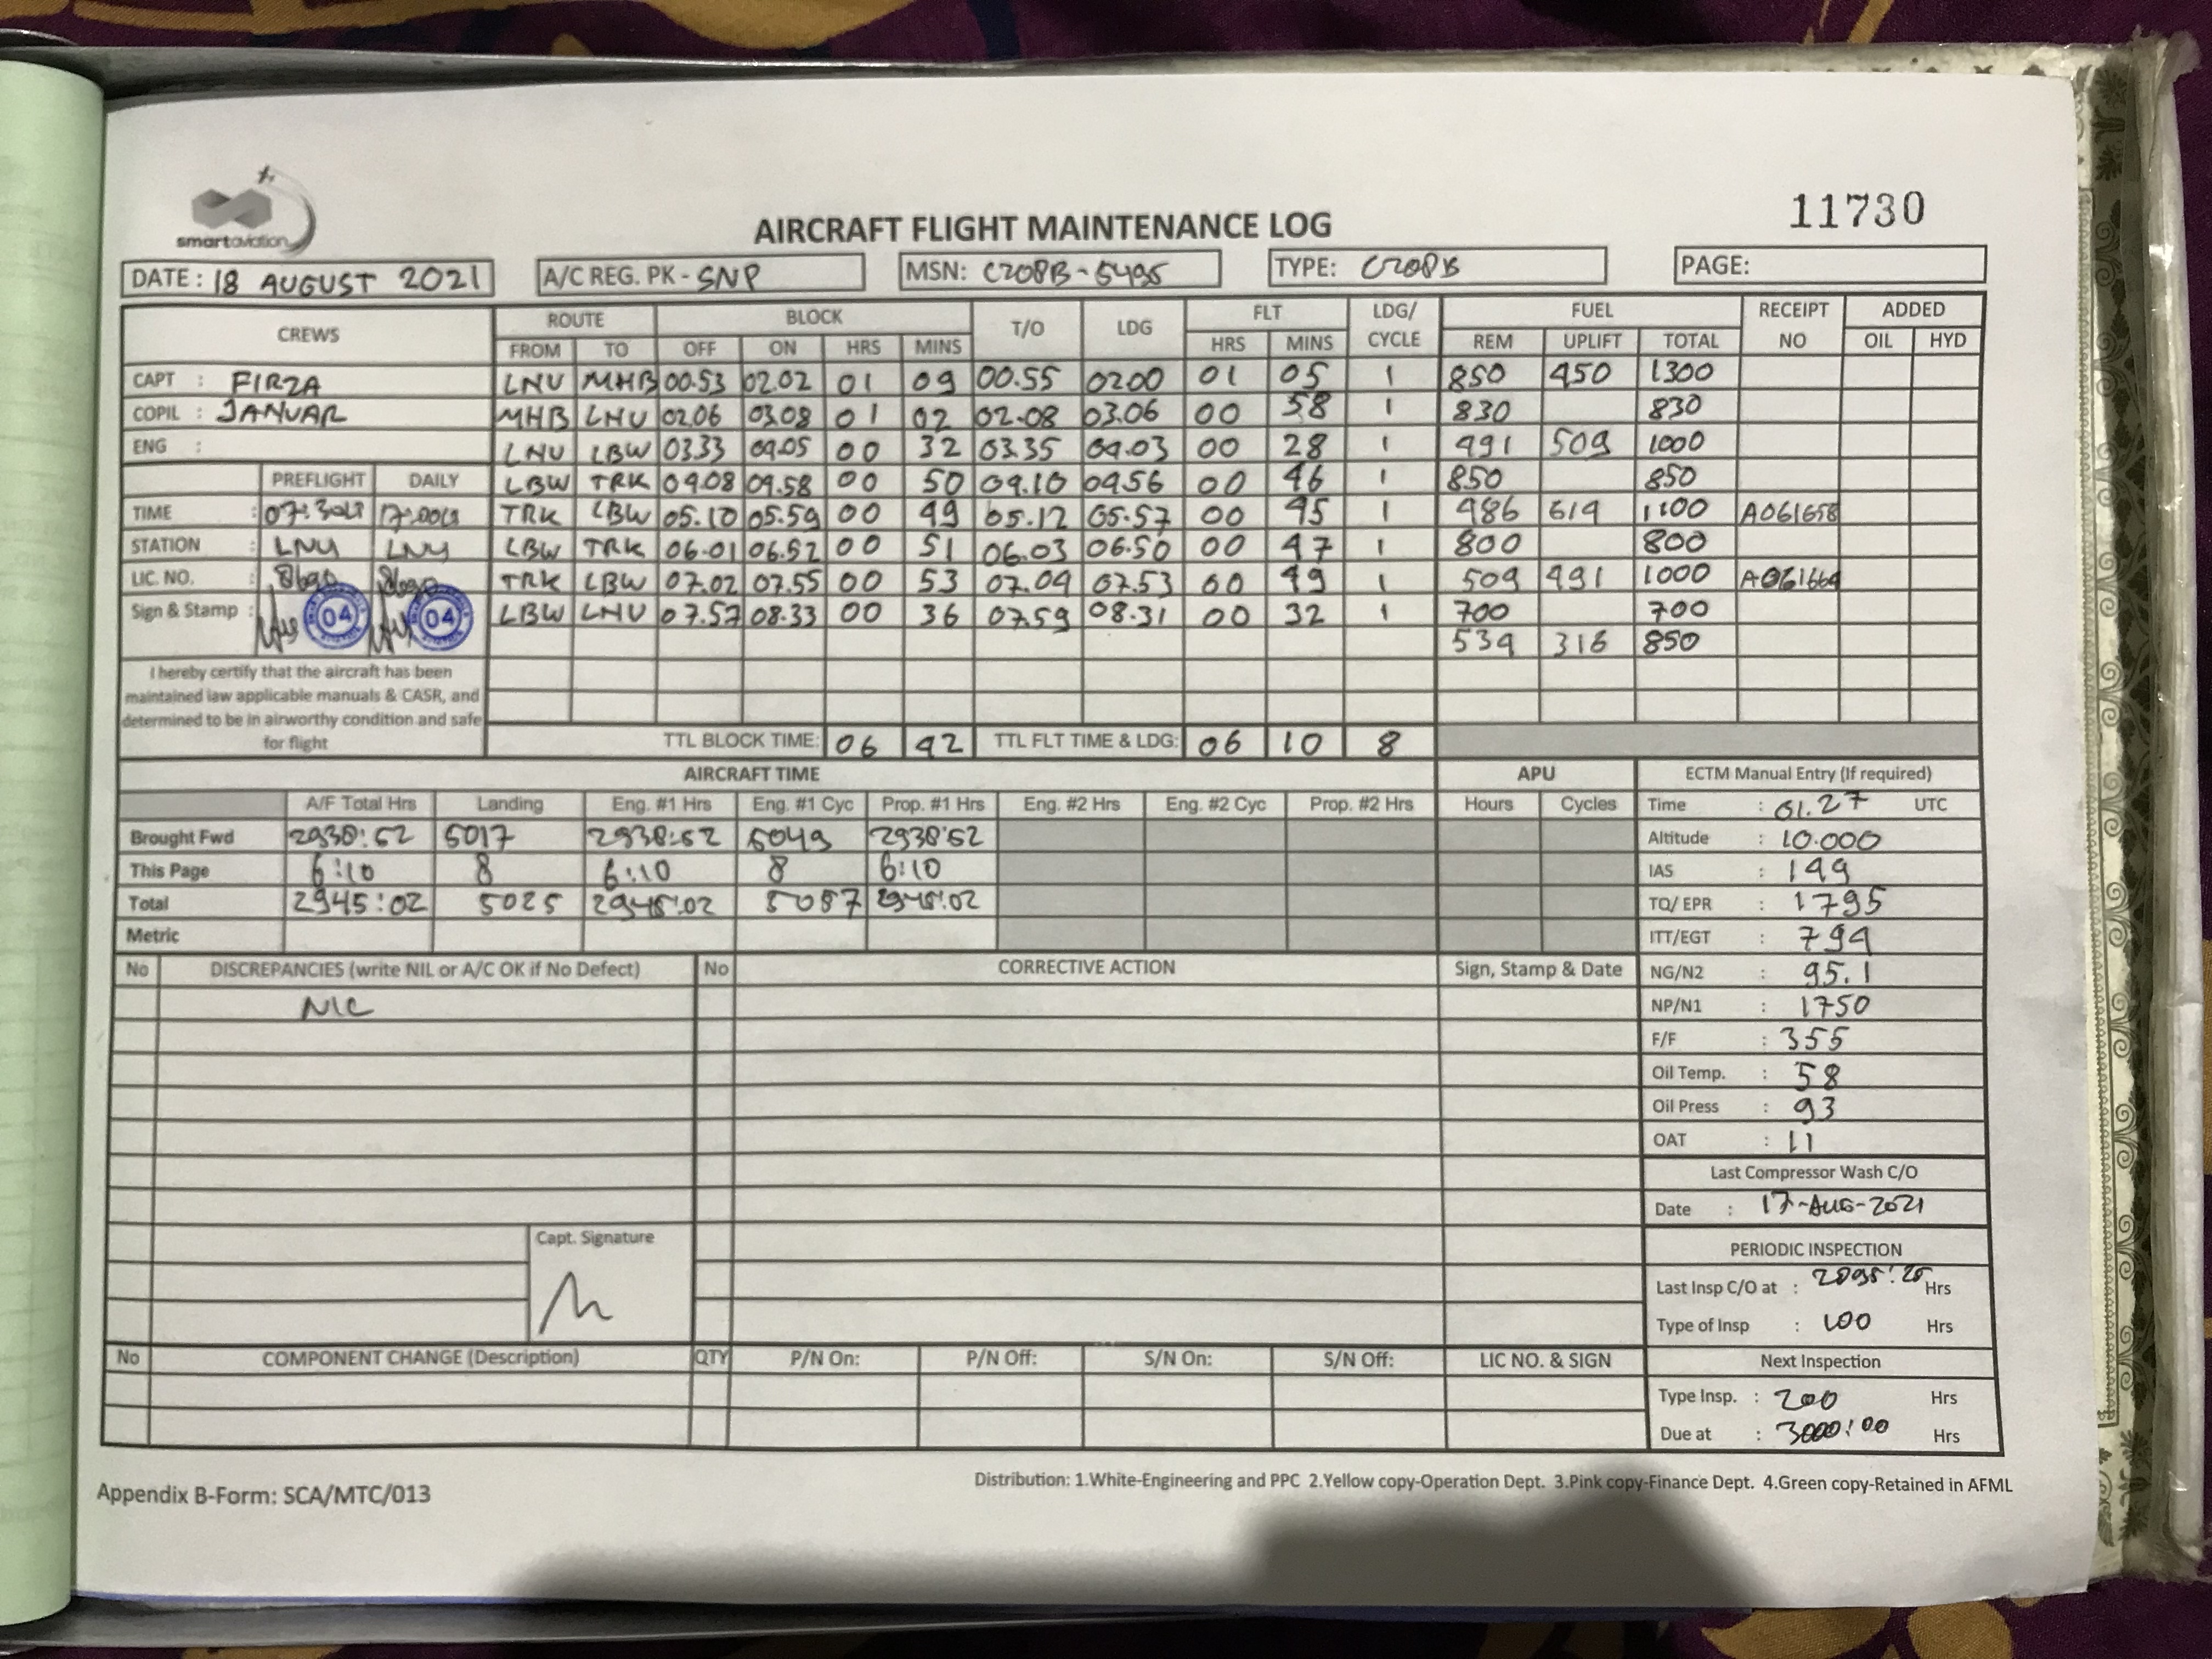 smartaviation
11730
AIRCRAFT FLIGHT MAINTENANCE LOG
DATE : 18 AUGUST 2021 A/C REG. PK - SNP MSN: C208B-5495 TYPE: C208B PAGE:
CREWS ROUTE BLOCK T/O LDG FLT LDG/ CYCLE FUEL RECEIPT NO ADDED
FROM TO OFF ON HRS MINS HRS MINS REM UPLIFT TOTAL OIL HYD
CAPT : FIRZA LNU MHB 00.53 02.02 01 09 00.55 0200 01 05 1 850 450 1300
COPIL : JANUAR MHB LNU 02.06 03.08 01 02 02.08 03.06 00 58 1 830 830
ENG : LNU LBW 03.33 04.05 00 32 03.35 04.03 00 28 1 491 509 1000
PREFLIGHT DAILY LBW TRK 04.08 04.58 00 50 04.10 0456 00 46 1 850 850
TIME : 07:30 17:00 TRK LBW 05.10 05.59 00 49 05.12 05.57 00 45 1 486 614 1100 A061658
STATION : LNU LNU LBW TRK 06.01 06.52 00 51 06.03 06.50 00 47 1 800 800
LIC. NO. : TRK LBW 07.02 07.55 00 53 07.04 07.53 00 49 1 509 491 1000 A061664
Sign & Stamp : 04 04 LBW LNU 07.57 08.33 00 36 07.59 08.31 00 32 1 700 700
534 316 850
I hereby certify that the aircraft has been
maintained iaw applicable manuals & CASR, and
determined to be in airworthy condition and safe
for flight
TTL BLOCK TIME: 06 42 TTL FLT TIME & LDG: 06 10 8
AIRCRAFT TIME APU ECTM Manual Entry (If required)
A/F Total Hrs Landing Eng. #1 Hrs Eng. #1 Cyc Prop. #1 Hrs Eng. #2 Hrs Eng. #2 Cyc Prop. #2 Hrs Hours Cycles Time : 01.27 UTC
Brought Fwd 2938:52 5017 2938:52 5049 2938:52 Altitude : 10.000
This Page 6:10 8 6:10 8 6:10 IAS : 149
Total 2945:02 5025 2945:02 5057 2945:02 TQ/ EPR : 1795
Metric ITT/EGT : 794
No DISCREPANCIES (write NIL or A/C OK if No Defect) No CORRECTIVE ACTION Sign, Stamp & Date NG/N2 : 95.1
NIL NP/N1 : 1750
F/F : 355
Oil Temp. : 58
Oil Press : 93
OAT : 11
Last Compressor Wash C/O
Date : 17-AUG-2021
Capt. Signature
PERIODIC INSPECTION
Last Insp C/O at : Hrs
Type of Insp : 100 Hrs
No COMPONENT CHANGE (Description) QTY P/N On: P/N Off: S/N On: S/N Off: LIC NO. & SIGN Next Inspection
Type Insp. : 200 Hrs
Due at : 3000:00 Hrs
Appendix B-Form: SCA/MTC/013
Distribution: 1.White-Engineering and PPC 2.Yellow copy-Operation Dept. 3.Pink copy-Finance Dept. 4.Green copy-Retained in AFML